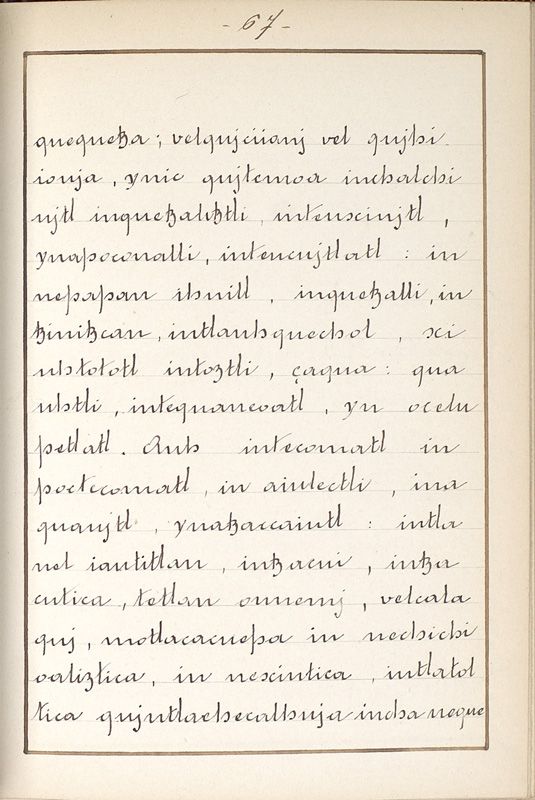 - 67 -
quequetza; velqujciianj vel qujhi
ionja, ynic qujtemoa inchalchi
ujtl inquetzalitztli, intenxiujtl,
ynapoconalli, intencujtlatl: in
nepapan ihuill, inquetzalli, in
tzinitzcan, intlauhquechol, xi
uhtototl intoztli, çaqua: qua
uhtli, intequancoatl, yn ocelu
petlatl. Auh intecomatl in
poctecomatl, in aiutectli, ina
quaujtl, ynatzaccaiutl: intla
nel iautitlan, intzacui, intza
cutica, tetlan onnemj, velcala
quj, motlacacuepa in nechichi
oaliztica, in nexintica, intlatol
tica qujntlaehecalhuja incha neque